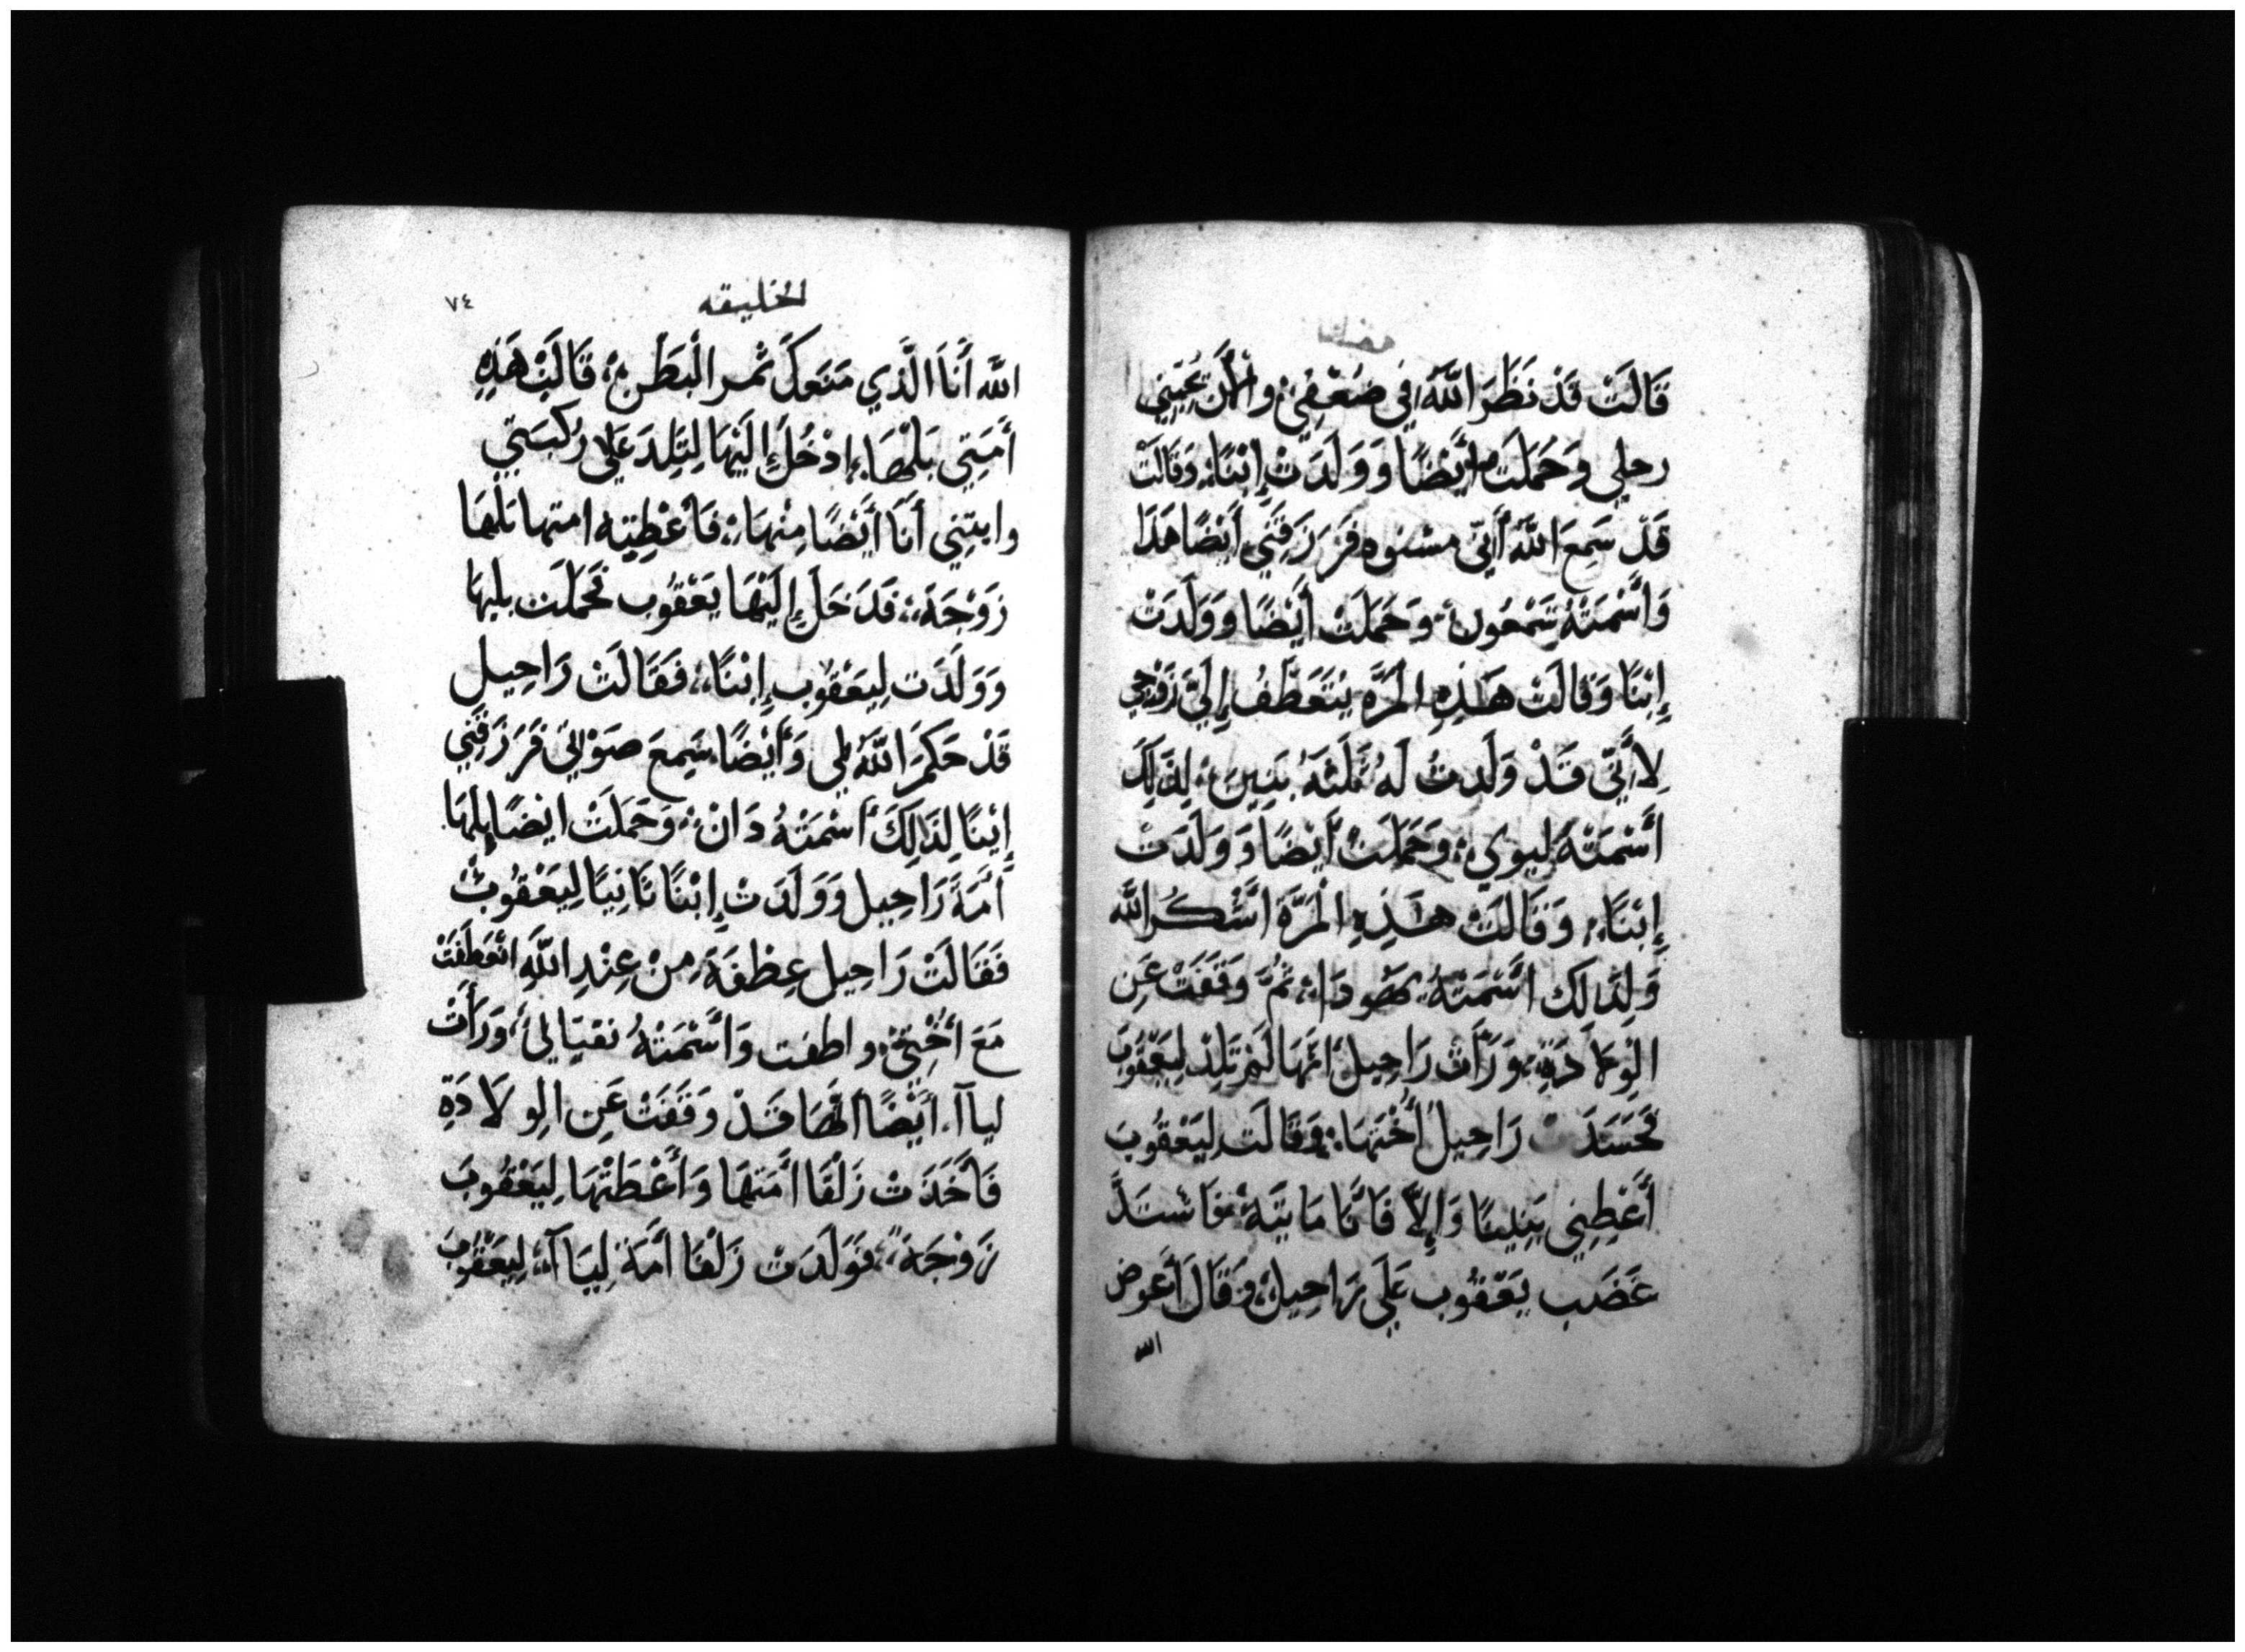 قَالَتْ قَدْ نَظَرَ اللَّهُ فِي ضُعْفِي وألْأَنَ يُحِبُّنِي
رجلي وَحَمَلَتْ أَيْضًا وَوَلَدَتْ إِبْنًا وَقَالَتْ
قَدْ سَمِعَ اللَّهُ أَنِّي مشنوه فَرَزَقَنِي أَيْضًا هَذَا
وَأَسْمَتْهُ شَمْعُون وَحَمَلَتْ أَيْضًا وَوَلَدَتْ
إِبْنًا وَقَالَتْ هَذِهِ المَرَّه يَنْعَطَفُ إِلَيَّ زَوْجِي
لِأَنِّي قَدْ وَلَدتُ لَهُ ثَلَثَةُ بَنِينَ لِذَلِكَ
أَسْمَتْهُ لِيوي وَحَمَلَتْ أَيْضًا وَوَلَدَتْ
إِبْنًا وَقَالَتْ هَذِهِ الْمَرَّةَ أَشْكُر اللَّه
وَلِذَالِكَ أَسْمَتْهُ يَهُودَا ثُمَّ وَقَفَتْ عَنِ
الْوِلَادَةِ وَرَأَتْ رَاحِيلُ أَنَّهَا لَمْ تَلِدْ لِيَعْقُوبَ
فَحَسَدَتْ رَاحِيلُ أُخْتَهَا وَقَالَتْ لِيَعْقُوبَ
أَعْطِنِي بَنِينًا وَإِلاَّ فَأَنَا مَايِتَةْ فَاشْتَدَّ
غَضَب يَعْقُوب عَلَي رَاحِيلْ وَقَالَ أَعوض
الله
الخليقه
٧٤
اللَّه أَنَا الَّذِي مَنَعكِ ثمر الْبَطْنِ قَالَتْ هَذِهِ
أَمَتِي بَلْهَا إدْخُلْ إِلَيْهَا لِتَلِدَ عَلَى رُكْبَتِي
وابتني أَنَا أَيْضًا مِنْهَا فَأعْطِيته امتها بلها
زَوْجَة فَدَخَلَ إِلَيْهَا يَعْقُوب فَحَمَلَت بلها
وَوَلَدَت لِيَعْقُوب إِبْنًا فَقَالَتْ رَاحِيل
قَدْ حَكَمَ اللَّهُ لِي وَأَيْضًا سَمِعَ صَوْتِي فَرَزَقَنِي
إِبْنًا لِذَالِكَ أسْمَتْهُ دَانْ وَحَمَلَتْ ايْضًا بِلهَا
أَمَةُ رَاحِيل وَوَلَدَتْ إِبْنًا ثَانِيًا لِيَعْقُوبْ
فَقَالَتْ رَاحِيل عِطْفَةً مِنْ عِنْدِ اللَّهِ انْعَطَفَتْ
مَعَ أُخْتِي واطفت وَأَسْمَتْهُ نفتَالِي وَرَأَتْ
لياآ أَيْضًا أَنَّهَا قَدْ وَقَفَتْ عَنِ الِولَادَةِ
فَأَخَذَتْ زَلْفَا أَمَتَهَا وَأَعْطَتْهَا لِيَعْقُوبَ
زَوْجَةً فَوَلَدَتْ زَلْفَا أَمَة لِيَاآ لِيَعْقُوبَ